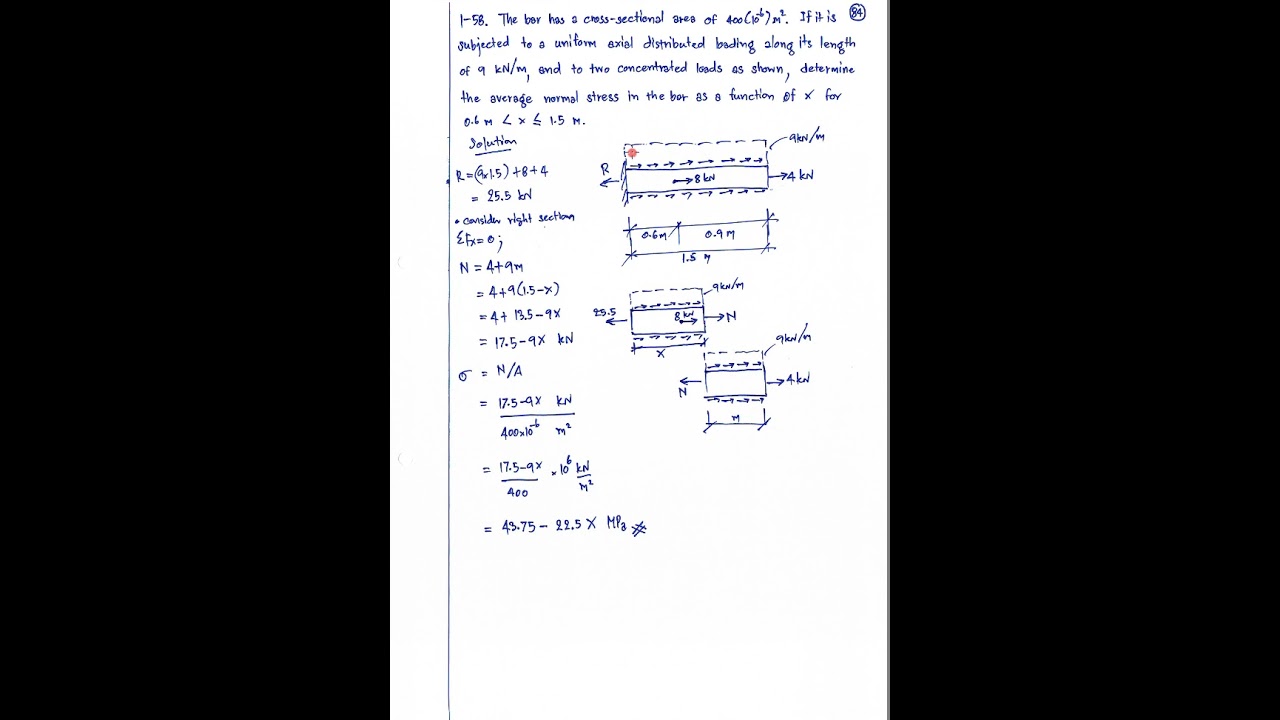 1-58. The bar has a cross-sectional area of 400(10⁻⁶) m². If it is
84
subjected to a uniform axial distributed loading along its length
of 9 kN/m, and to two concentrated loads as shown, determine
the average normal stress in the bar as a function of x for
0.6 m < x ≤ 1.5 m.
Solution
R = (9×1.5) + 8 + 4
= 25.5 kN
• consider right section
ΣFx = 0;
N = 4+9m
= 4+9(1.5-x)
= 4+ 13.5-9x
= 17.5-9x kN
σ = N/A
= 17.5-9x kN
400×10⁻⁶ m²
= 17.5-9x × 10⁶ kN
400 m²
= 43.75 - 22.5 X MPa
9kN/m
R
8 kN
4 kN
0.6m
0.9 m
1.5 m
9kN/m
25.5
8 kN
N
x
9kN/m
N
4kN
m